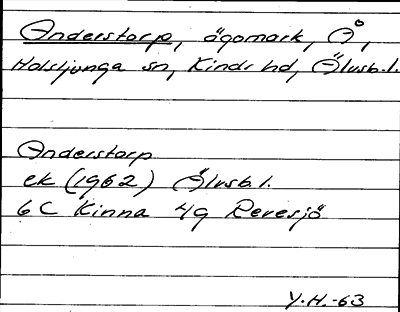 Anderstorp, ägomark, Å,
Holsljunga sn, Kinds hd, Älvsb. l.
Anderstorp
ek (1962) Älvsb. l.
6 C Kinna 4g Revesjö
Y.H.-63